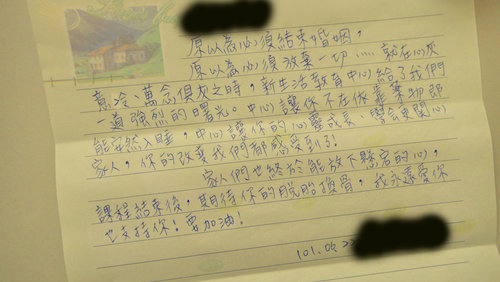 原以為必須結束婚姻，
原以為必須放棄一切……就在心灰
意冷、萬念俱灰之時，新生活教育中心給了我們
一道強烈的曙光。中心讓你不在依靠藥物即
能安然入睡，中心讓你的心靈成長、學會來關心
家人，你的改變我們都感受到了！
家人們也終於能放下懸宕的心，
課程結束後，期待你的脫胎換骨，我永遠愛你
也支持你！要加油！
101.06.22